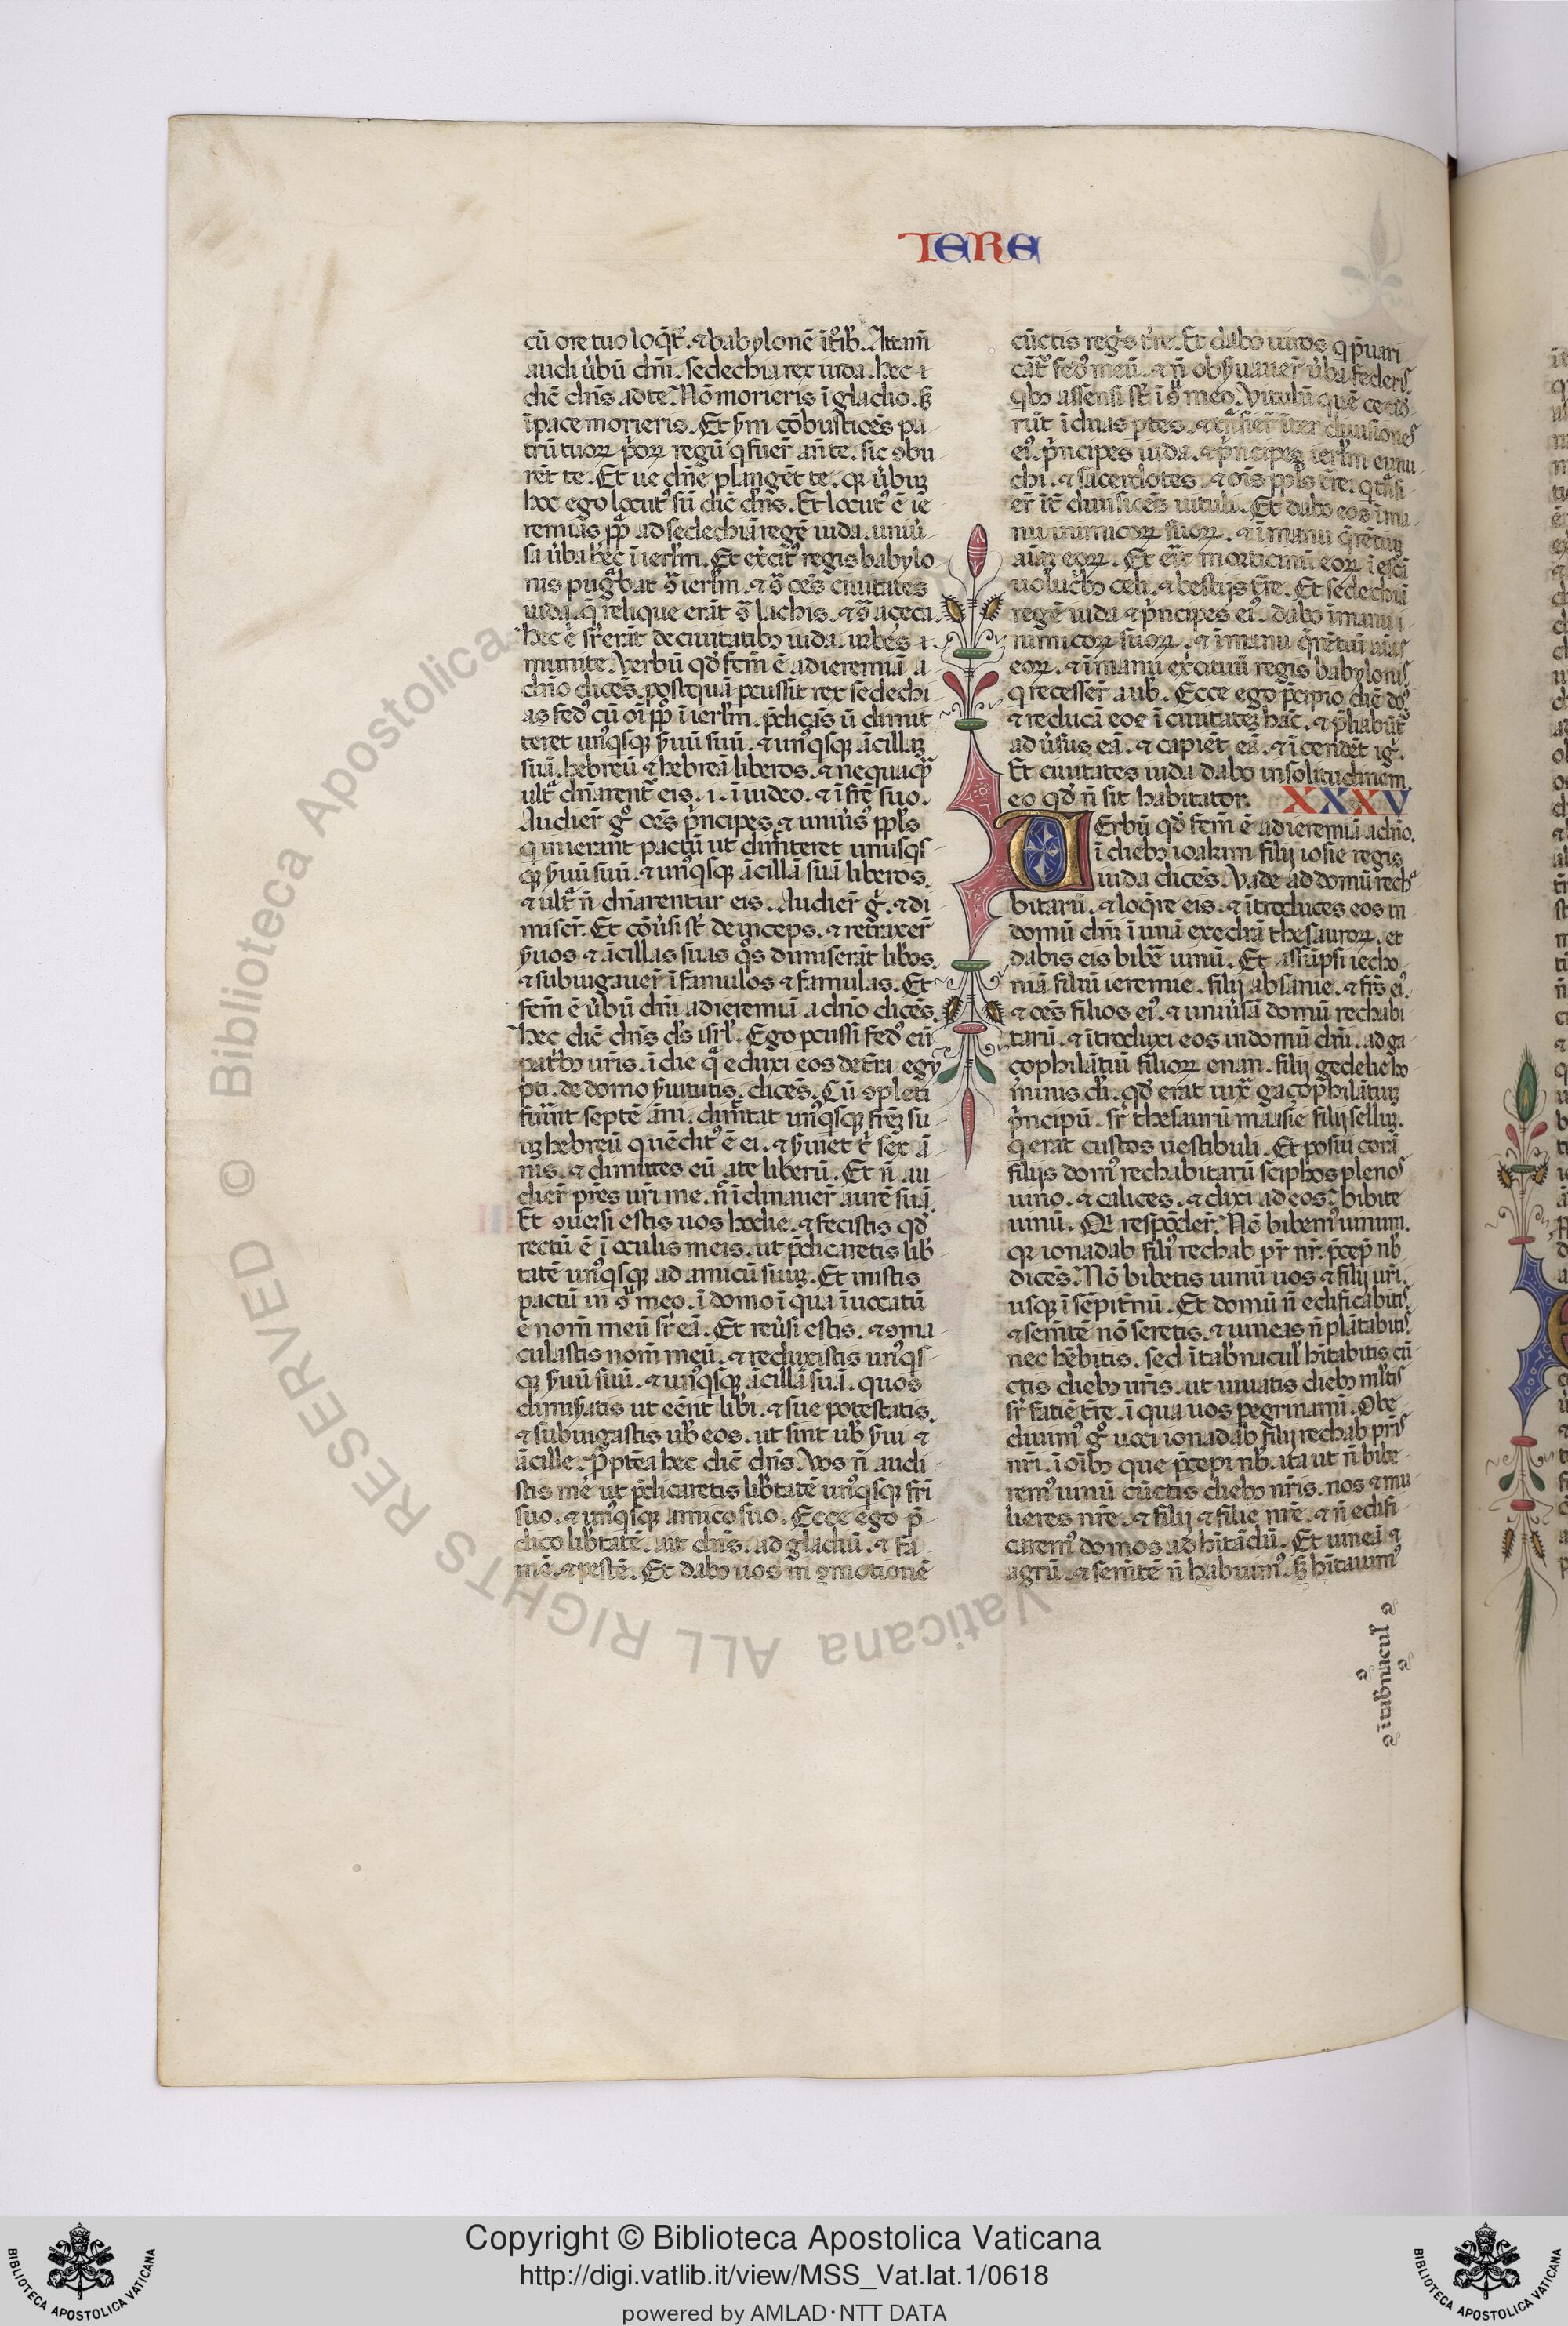 IERE
cũ ore tuo loq̃t᷑. ⁊ babylonẽ ĩt᷑ib̃. Attam̃
audi ùbũ dñi. sedechia rex iuda. hec i
dic̃ dñs ad te. Nõ morieris ĩ gladio. ꝫ
ĩ pace morieris. Et ẜm cõbustiões pa
trũ tuoꝝ p̃oꝝ regũ q̃ fuer̃ añ te. sic ꝯbu
rẽt te. Et ue dñe plangẽt te. qꝛ ùbuꝫ
hoc ego locut᷒ sũ dic̃ dñs. Et locut᷒ ẽ ie
remias ꝓp̃ ad sedechiã regẽ iuda. uniũ
sa ùba hec ĩ ierl̃m. Et exc̃it᷒ regis babylo
nis pugᷓbat ꝯᷓ ierl̃m. ⁊ ꝯᷓ oẽs ciuitates
iuda. q̃ relique erãt ꝯᷓ lachis. ⁊ ꝯᷓ açeca.
hec ẽ sr̃ erãt de ciuitatibꝫ iuda. urbes i
munite. Verbũ qđ fcm̃ ẽ ad ieremiã a
dño dicẽs. postquã pcussit rex sedechi
as fed᷒ cũ oĩ pp̃ ĩ ierl̃m. p̃dicãs ũ dimit
teret unᷣqsqꝫ ẜuũ suũ. ⁊ unᷣqsqꝫ ãcillaꝫ
suã. hebreũ ⁊ hebreã liberos. ⁊ nequaqᷓ
ultᷓ dñarent᷑ eis. i. ĩ iudeo. ⁊ ĩ fr̃e suo.
Audier̃ gͦ oẽs p̃ncipes ⁊ uniùs᷒ ppl̃s
q̃ inierant pactũ ut dim̃teret unusqs
qꝫ ẜuũ suũ. ⁊ unᷣqsqꝫ ãcillã suã liberos.
⁊ ultᷓ ñ dñarentur eis. Audier̃ gͦ. ⁊ di
miser̃. Et cõùsi st̃ deinceps. ⁊ retraxer̃
ẜuos ⁊ ãcillas suas q̃s dimiserãt lib̃os.
⁊ subiugauer̃ ĩ famulos ⁊ famulas. Et
fcm̃ ẽ ùbũ dñi ad ieremiã a dño dicẽs.
hec dic̃ dñs ds̃ isrl̃. Ego pcussi fed᷒ cũ
patr̃bꝫ ur̃is. ĩ die qᷓ eduxi eos de t̃ra egy
pti. de domo ẜuitutis. dicẽs. Cũ ꝯpleti
fuĩnt septẽ ãni. dim̃tat unᷣqsqꝫ fr̃eꝫ su
uꝫ hebreũ q uẽdit᷒ ẽ ei. ⁊ ẜuiet t̃ sex ã
nis. ⁊ dimittes eũ a te liberũ. Et ñ au
dier̃ pr̃es ur̃i me. ñ ĩclinauer̃ aurẽ suã.
Et ꝯuersi estis uos hodie. ⁊ fecistis qđ
rectũ ẽ ĩ oculis meis. ut p̃dicaretis lib̃
tatẽ unᷣqsqꝫ ad amicũ suuꝫ. Et inistis
pactũ in ꝯᷤ meo. ĩ domo ĩ qua ĩuocatũ
ẽ nom̃ meũ sr̃ eã. Et reùsi estis. ⁊ ꝯma
culastis nom̃ meũ. ⁊ reduxistis unᷣqs
qꝫ ẜuũ suũ. ⁊ unᷣqsqꝫ ãcillã suã. quos
dimiẜatis ut eẽnt lib̃i. ⁊ sue potestatis.
⁊ subiugastis ub̃ eos. ut sint ub̃ ẜui ⁊
ãcille. ꝓpt̃ea hec dic̃ dñs. Vos ñ audi
stis me ut p̃dicaretis lib̃tatẽ unᷣqsqꝫ fr̃i
suo. ⁊ unᷣqsqꝫ amico suo. Ecce ego p̃
dico lib̃tatẽ. ait dñs. ad gladiũ. ⁊ fa
mẽ. ⁊ pestẽ. Et dabo uos in ꝯmotionẽ
cũctis regs̃ t̃re. Et dabo uiros q p̃uari
cãt᷑ fed᷒ meũ. ⁊ ñ obẜuauer̃ ùba federis
qbꝫ assensi st̃ ĩ ꝯᷤ meo. Vitulũ quẽ cecid
rũt ĩ duas ptes. ⁊ tᷓsier̃ ĩter diuisiones
ei᷒. p̃ncipes iuda. ⁊ p̃ncipes ierl̃m eunu
chi. ⁊ sacerdotes. ⁊ oĩs ppl̃s t̃re. q tᷓsi
er̃ ĩt̃ diuisiões uituli. Et dabo eos ĩ ma
nu inimicoꝝ suoꝝ. ⁊ ĩ manu q̃rẽtiuꝫ
aĩaꝫ eoꝝ. Et er̃t morticinũ eoꝝ ĩ escã
uoluc̃bꝫ celi. ⁊ bestijs t̃re. Et sedechiã
regẽ iuda ⁊ p̃ncipes ei᷒. dabo ĩ manu i
nimicoꝝ suoꝝ. ⁊ ĩ manu q̃rẽtiũ aĩas
eoꝝ. ⁊ ĩ manu exc̃ituũ regis babylonis
q recesser̃ a ub̃. Ecce ego p̃cipio dic̃ dñs.
⁊ reducã eos ĩ ciuitateꝫ hãc. ⁊ p̃liabũt᷑
ad ùsus eã. ⁊ capiẽt eã. ⁊ ĩcendẽt igᷣ.
Et ciuitates iuda dabo in solitudinem
eo qđ ñ sit habitator. XXXV
VErbũ qđ fcm̃ ẽ ad ieremiã a dño.
ĩ diebꝫ ioakim filij iosie regis
iuda dicẽs. Vade ad domũ recha
bitarũ. ⁊ loq̃re eis. ⁊ ĩtroduces eos in
domũ dñi ĩ unã exedrã thesauroꝝ. et
dabis eis bibẽ uinũ. Et assũpsi iecho
niã filiũ ieremie. filij absanie. ⁊ fr̃s ei᷒.
⁊ oẽs filios ei᷒. ⁊ uniùsã domũ rechabi
tarũ. ⁊ ĩtroduxi eos in domũ dñi. ad ga
çophilãtiũ filioꝝ enan. filij gedelie ho
minis di. qđ erat iuxᷓ gaçophilãtiuꝫ
p̃ncipũ. sr̃ thesaurũ maasie filij selluꝫ.
q erat custos uestibuli. Et posui corã
filijs dom᷒ rechabitarũ sciphos plenos
uino. ⁊ calices. ⁊ dixi ad eos. bibite
uinũ. Qi respõder̃. Nõ bibem᷒ uinum.
qꝛ ionadab fili᷒ rechab pr̃ nr̃. p̃cep̃ nb̃
dicẽs. Nõ bibetis uinũ uos ⁊ filij ur̃i.
usqꝫ ĩ sẽpit̃nũ. Et domũ ñ edificabitis
⁊ semẽtẽ nõ seretis. ⁊ uineas ñ plãtabitis
nec hẽbitis. sed ĩ tab̃nacul̃ hĩtabitis cũ
ctis diebꝫ ur̃is. ut uiuatis diebꝫ ml̃tis
sr̃ fatiẽ t̃re. ĩ qua uos pegrinami. Obe
diuim᷒ gͦ uoci ionadab filij rechab pr̃is
nr̃i. ĩ oĩbꝫ que p̃cepi nb̃. ita ut ñ bibe
rem᷒ uinũ cũctis diebꝫ nr̃is. nos ⁊ mu
lieres nr̃e. ⁊ filij ⁊ filie nr̃e. ⁊ ñ edifi
carem᷒ domos ad hĩtãdũ. Et uineã ⁊
agrũ. ⁊ semẽtẽ ñ habuim᷒. ꝫ hĩtauim᷒
ĩ tab̃nacul
© Biblioteca Apostolica Vaticana ALL RIGHTS RESERVED
Copyright © Biblioteca Apostolica Vaticana
http://digi.vatlib.it/view/MSS_Vat.lat.1/0618
powered by AMLAD·NTT DATA
BIBLIOTECA APOSTOLICA VATICANA
BIBLIOTECA APOSTOLICA VATICANA